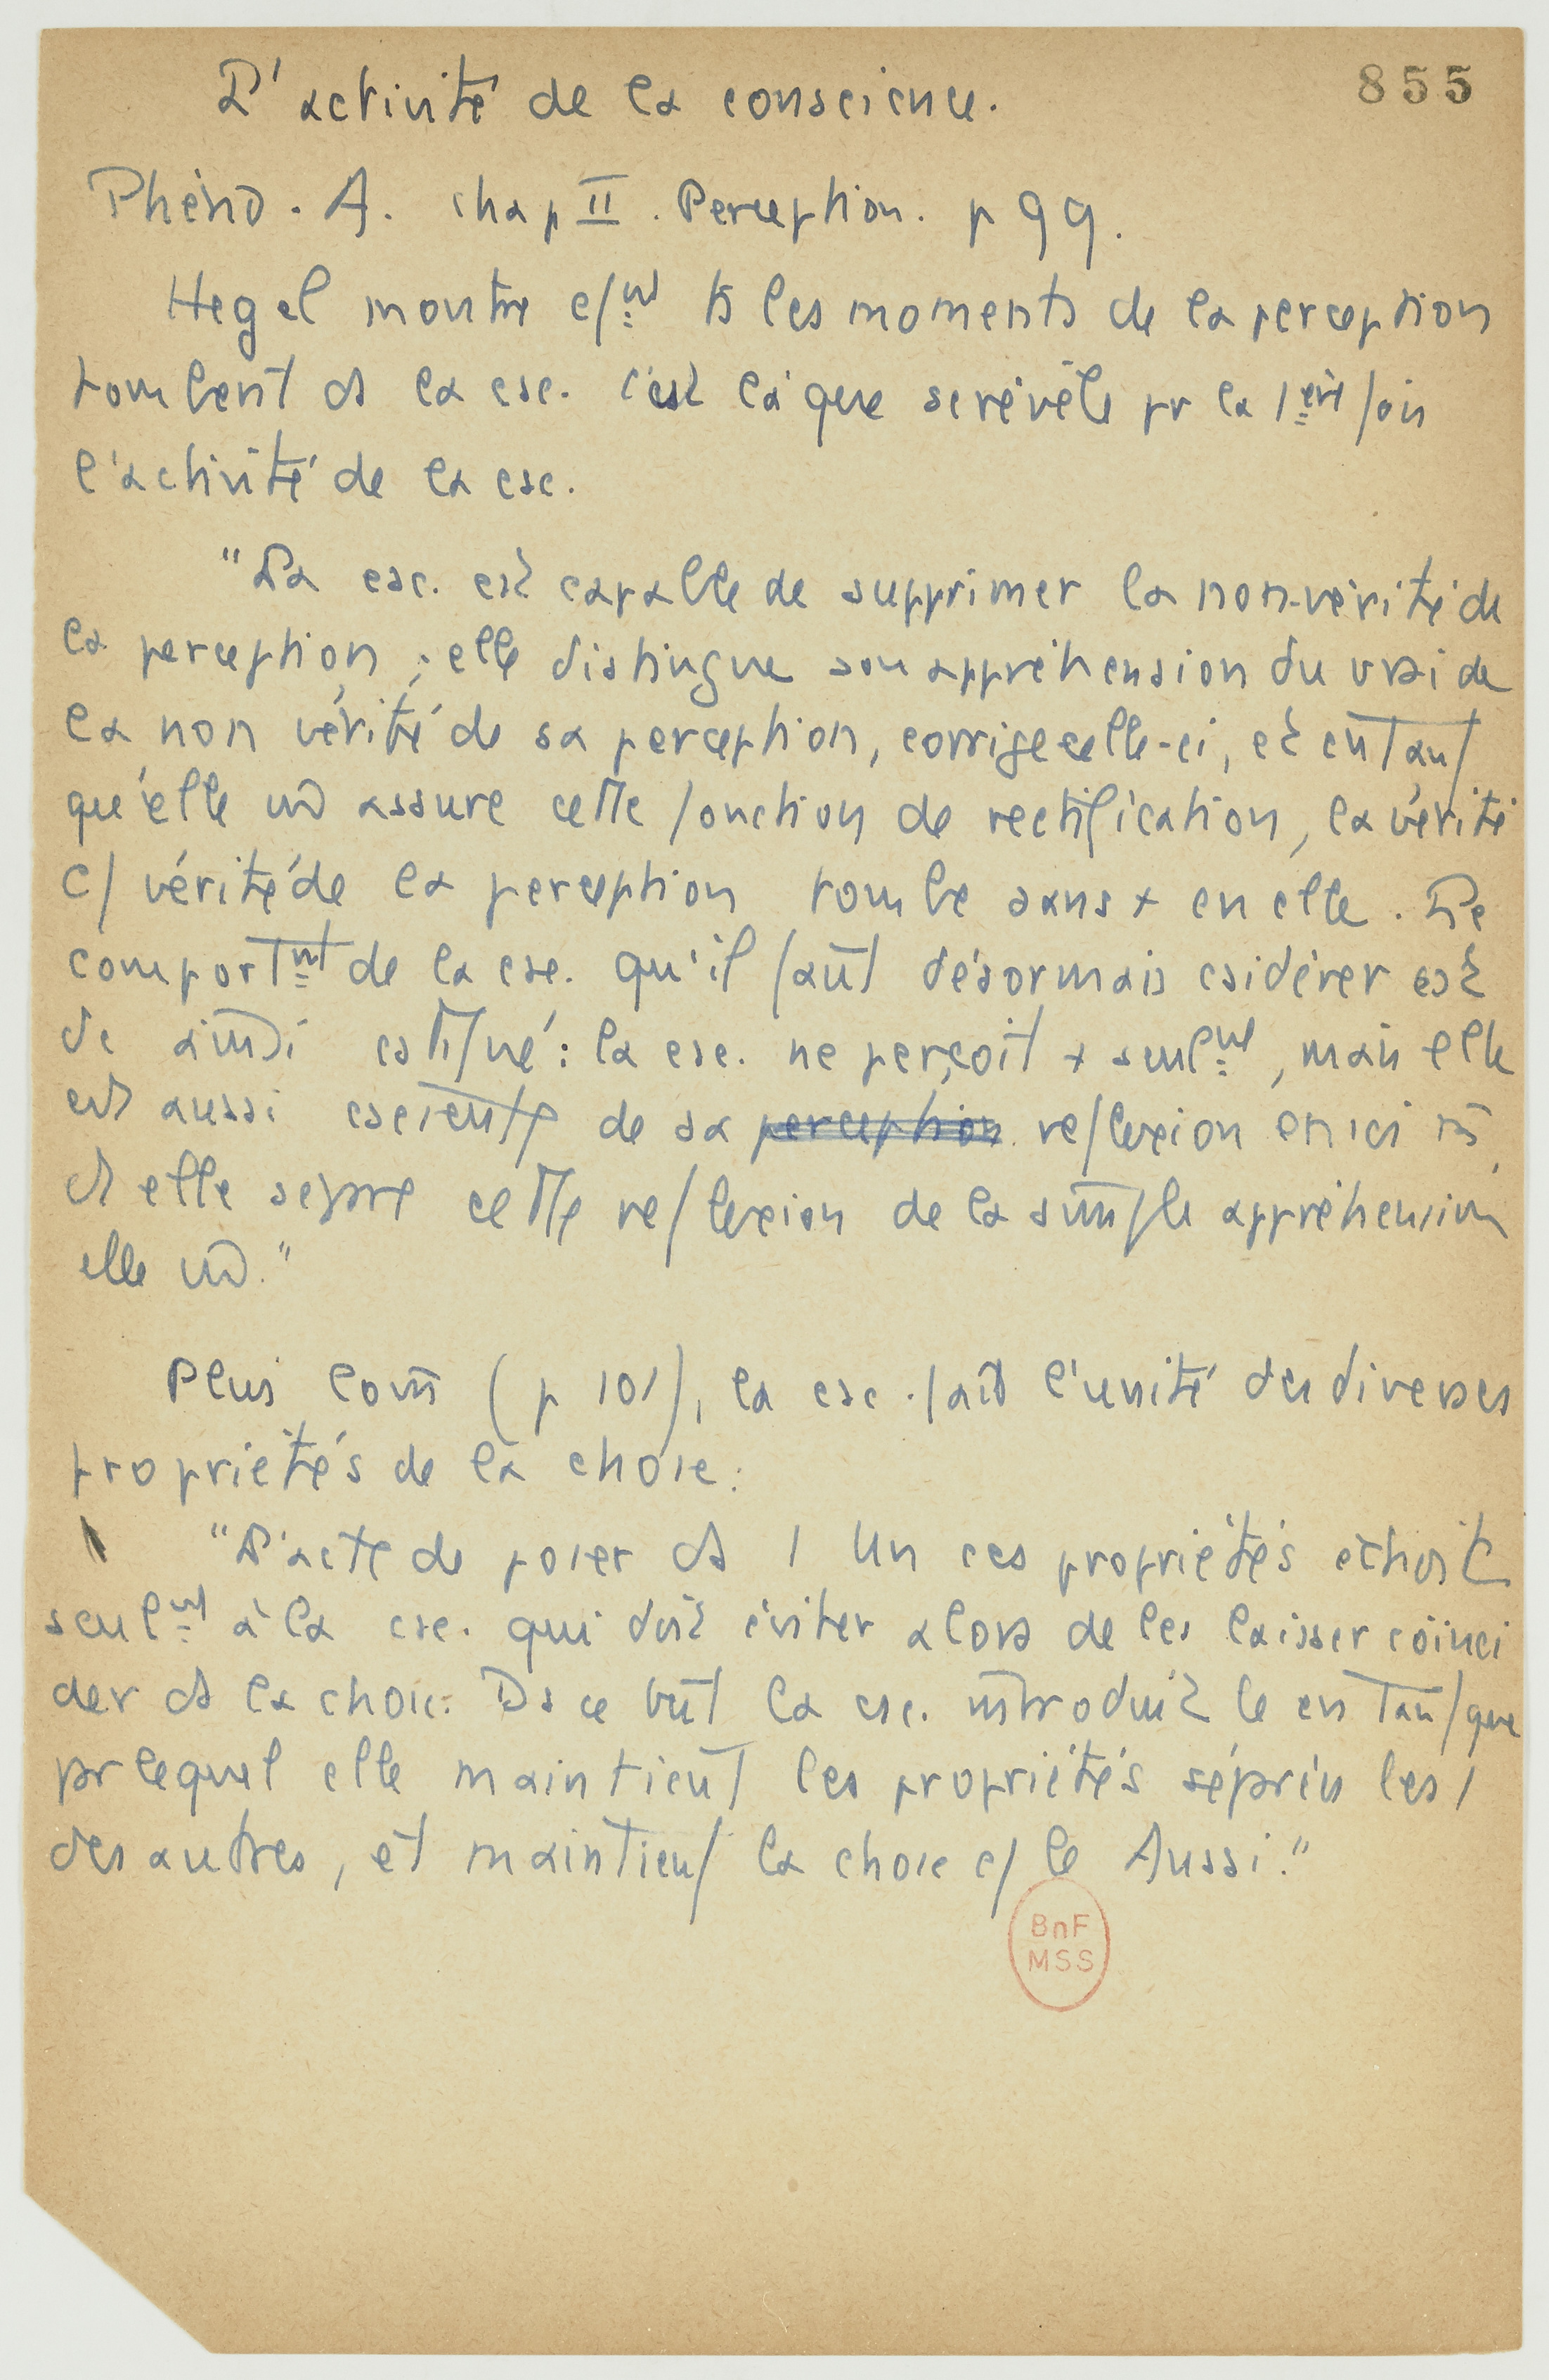 L'activité de la conscience.
855
Phéno. A. chap II. Perception. p 99.
Hegel montre c/nt ts les moments de la perception
tombent ds la csc. C'est là que se révèle pr la 1ère fois
l'activité de la csc.
"La csc. est capable de supprimer la non-vérité de
la perception ; elle distingue son appréhension du vrai de
la non vérité de sa perception, corrige celle-ci, et en tant
qu'elle assure cette fonction de rectification, la vérité
c/ vérité de la perception tombe sans + en elle. Le
comportnt de la csc. qu'il faut désormais csidérer est
dc ainsi cstitué : la csc. ne perçoit + seulnt, mais elle
est aussi csciente de sa perception reflexion en soi m̄,
et elle sépare cette reflexion de la simple appréhension
elle m̄."
Plus loin (p 101), la csc. fait l'unité des diverses
propriétés de la chose :
"L'acte de poser ds 1 Un ces propriétés échoit
seulnt à la csc. qui doit éviter alors de les laisser coïnci
der ds la chose. Ds ce but la csc. introduit le en tant que
par lequel elle maintient les propriétés séparées les 1
des autres, et maintient la chose c/ le Aussi."
BnF
MSS